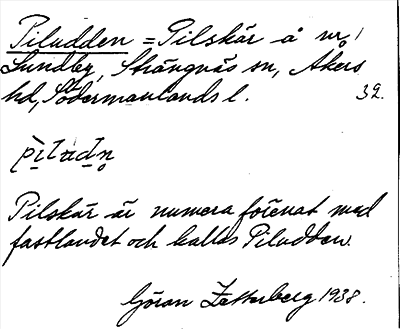 Piludden = Pilskär å nr 1
Sundby, Strängnäs sn, Åkers
hd, Södermanlands l. 32.
Pilskär är numera förenat med
fastlandet och kallas Piludden.
Göran Zetterberg 1938.